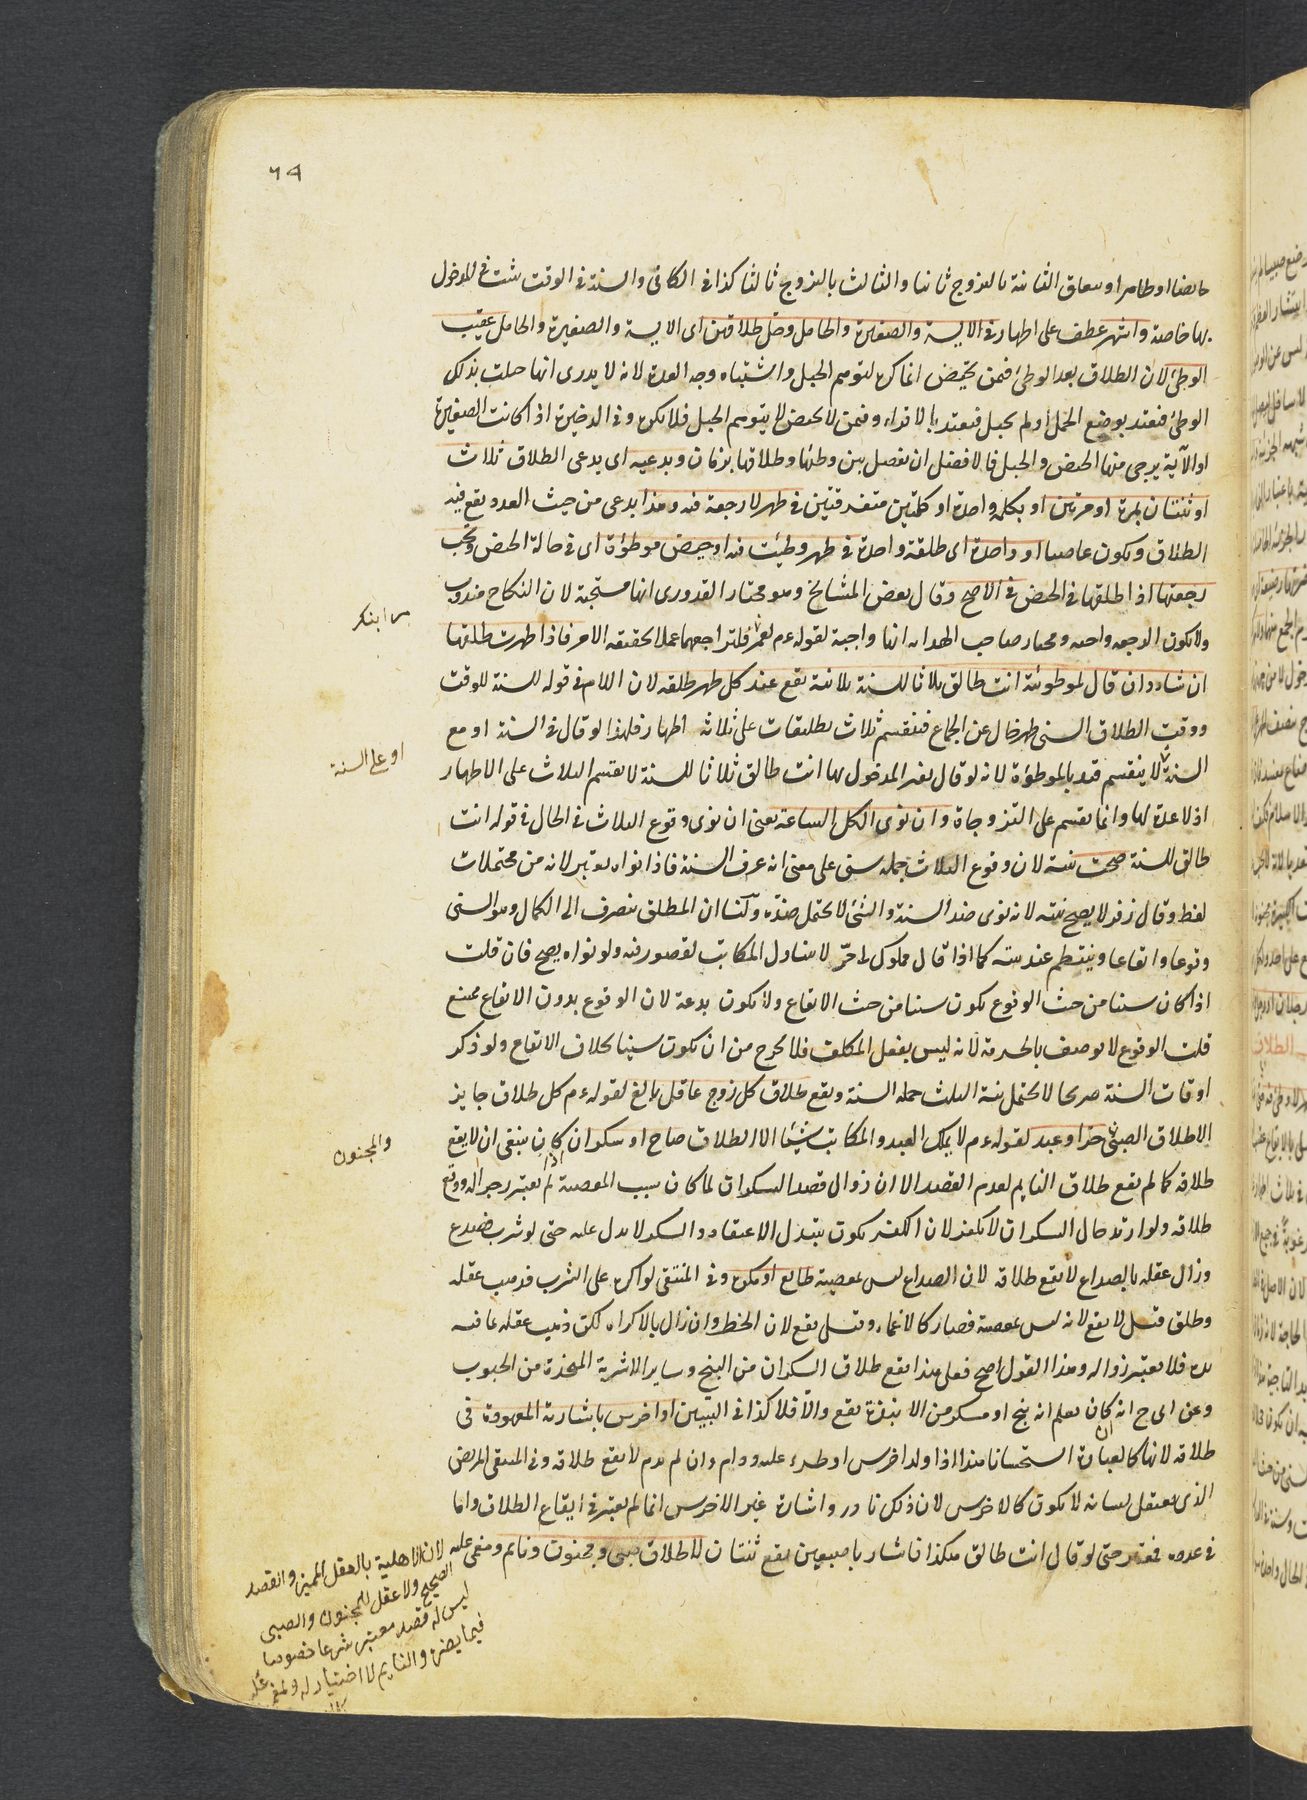 ٦٩
حايضا او طاهرا ويعلق الثانية بالتزوج ثانيا والثالث بالتزوج ثالثا كذا في الكافي والسنة في الوقت تثبت في المدخول
بها خاصة واشهر عطف على اطهار في الآيسة والصغيرة والحامل وحل طلاقهن اى الايسة والصغيرة والحامل عقيب
الوطئ لان الطلاق بعد الوطئ فمن تحيض انما كره لتوهم الحبل واشتباه وجه العدة لانه لا يدرى انها حبلت بذلك
الوطئ فتعتد بوضع الحمل او لم تحبل فتعتد بالاقراء وفمن لا تحيض لا يتوهم الحبل فلا يكره وفي الذخيرة اذا كانت الصغيرة
او الآيسة يرجى منها الحيض والحبل فالافضل ان يفصل بين وطئها وطلاقها بزمان وبدعيه اى بدعى الطلاق ثلاث
او ثنتان بمرة او مرتين او بكلمة واحدة او كلمتين متفرقتين في طهر لا رجعة فيه وهذا بدعى من حيث العدد ويقع فيه
الطلاق ويكون عاصيا او واحدة اى طلقة واحدة في طهر وطئت فيه او حيض موطؤة اى في حالة الحيض وتجب
رجعتها اذا طلقها في الحيض في الاصح وقال بعض المشائخ وهو مختار القدورى انها مستحبة لان النكاح مندوب
ولا تكون الرجعة واجبة ومختار صاحب الهداية انها واجبة لقوله ءم لعمر فليراجعها عملا بحقيقة الامر فاذا طهرت طلقها
ان شاء وان قال لموطوئته انت طالق ثلاثا للسنة بلا نية يقع عند كل طهر طلقة لان اللام في قوله للسنة للوقت
ووقت الطلاق السنى طهر خال عن الجماع فتنقسم ثلاث تطليقات على ثلاثة اطهار فلهذا لو قال في السنة او مع
او على السنة
السنة لا ينقسم قيد بالموطؤة لانه لو قال لغير المدخول بها انت طالق ثلاثا للسنة لا يقسم الثلاث على الاطهار
اذ لا عدة لها وانما يقسم على التزوجاة وان نوى الكل الساعة يعنى ان نوى وقوع الثلاث في الحال في قوله انت
طالق للسنة صحت نيته لان وقوع الثلاث جملة سنى على معنى انه عرف السنة فاذا نواه يعتبر لانه من محتملات
لفظه وقال زفر لا يصح نيته لانه نوى ضد السنة والشئ لا يحتمل ضده ولنا ان المطلق ينصرف الى الكمال وهو السنى
وقوعا وايقاعا وينتظم عند نيته كما اذا قال مملوك لى حرّ لا يتناول المكاتب لقصور فيه ولو نواه يصح فان قلت
اذا كان سنيا من حيث الوقوع يكون سنيا من حيث الايقاع ولا يكون بدعة لان الوقوع بدون الايقاع ممتنع
قلت الوقوع لا يوصف بالحرمة لانه ليس بفعل المكلف فلا يخرج من ان يكون سنيا بخلاف الايقاع ولو ذكر
اوقات السنة صريحا لا يحتمل نية الثلث جملة السنة ويقع طلاق كل زوج عاقل بالغ لقوله ءم كل طلاق جايز
الا طلاق الصبى حرّا وعبد لقوله ءم لا يملك العبد والمكاتب شيئا الا الطلاق صاح او سكران كان ينبغى ان لا يقع
والمجنون
طلاقه كما لم يقع طلاق النايم لعدم القصد الا ان زوال قصد السكران لما كان بسبب المعصية لم يعتبر زجرا له ووقع
طلاقه ولو ارتد حال السكران لا يكفر لان الكفر يكون بتبدل الاعتقاد والسكر لا يدل عليه حتى لو شرب فصدع
وزال عقله بالصداع لا يقع طلاقه لان الصداع ليس بمعصية طايع او مكره وفي المنتقى لو اكره على الشرب فذهب عقله
وطلق قيل لا يقع لانه ليس بمعصية فصار كالاغماء وقيل يقع لان الخطر وان زال بالاكراه لكن ذهب عقله بما فيه
لذة فلا يعتبر زواله وهذا القول اصح فعلى هذا يقع طلاق السكران من البنج وساير الاشربة المتخذة من الحبوب
وعن ابى ح انه ان كان يعلم انه بنج او مسكر من الانبذة يقع والّا فلا كذا في التبيين او اخرس باشارته المعهودة في
طلاقه لانها كالعبارة استحسانا هذا اذا ولد اخرس او طرء عليه ودام وان لم يدم لا يقع طلاقه وفي المنتقى المريض
الذى يعتقل لسانه لا يكون كالاخرس لان ذلك نادر واشارة غير الاخرس انما لم يعتبر في ايقاع الطلاق واما
في عدده فمعتبر حتى لو قال انت طالق هكذا فاشار باصبعين يقع ثنتان لا طلاق صبى ومجنون ونايم ومغمى عليه
لان الاهلية بالعقل المميز والقصد
الصحيح ولا عقل للمجنون والصبى
ليس له قصد معتبر شرعا خصوصا
فيما يضره والنايم لا اختيار له ولمغمى عليه